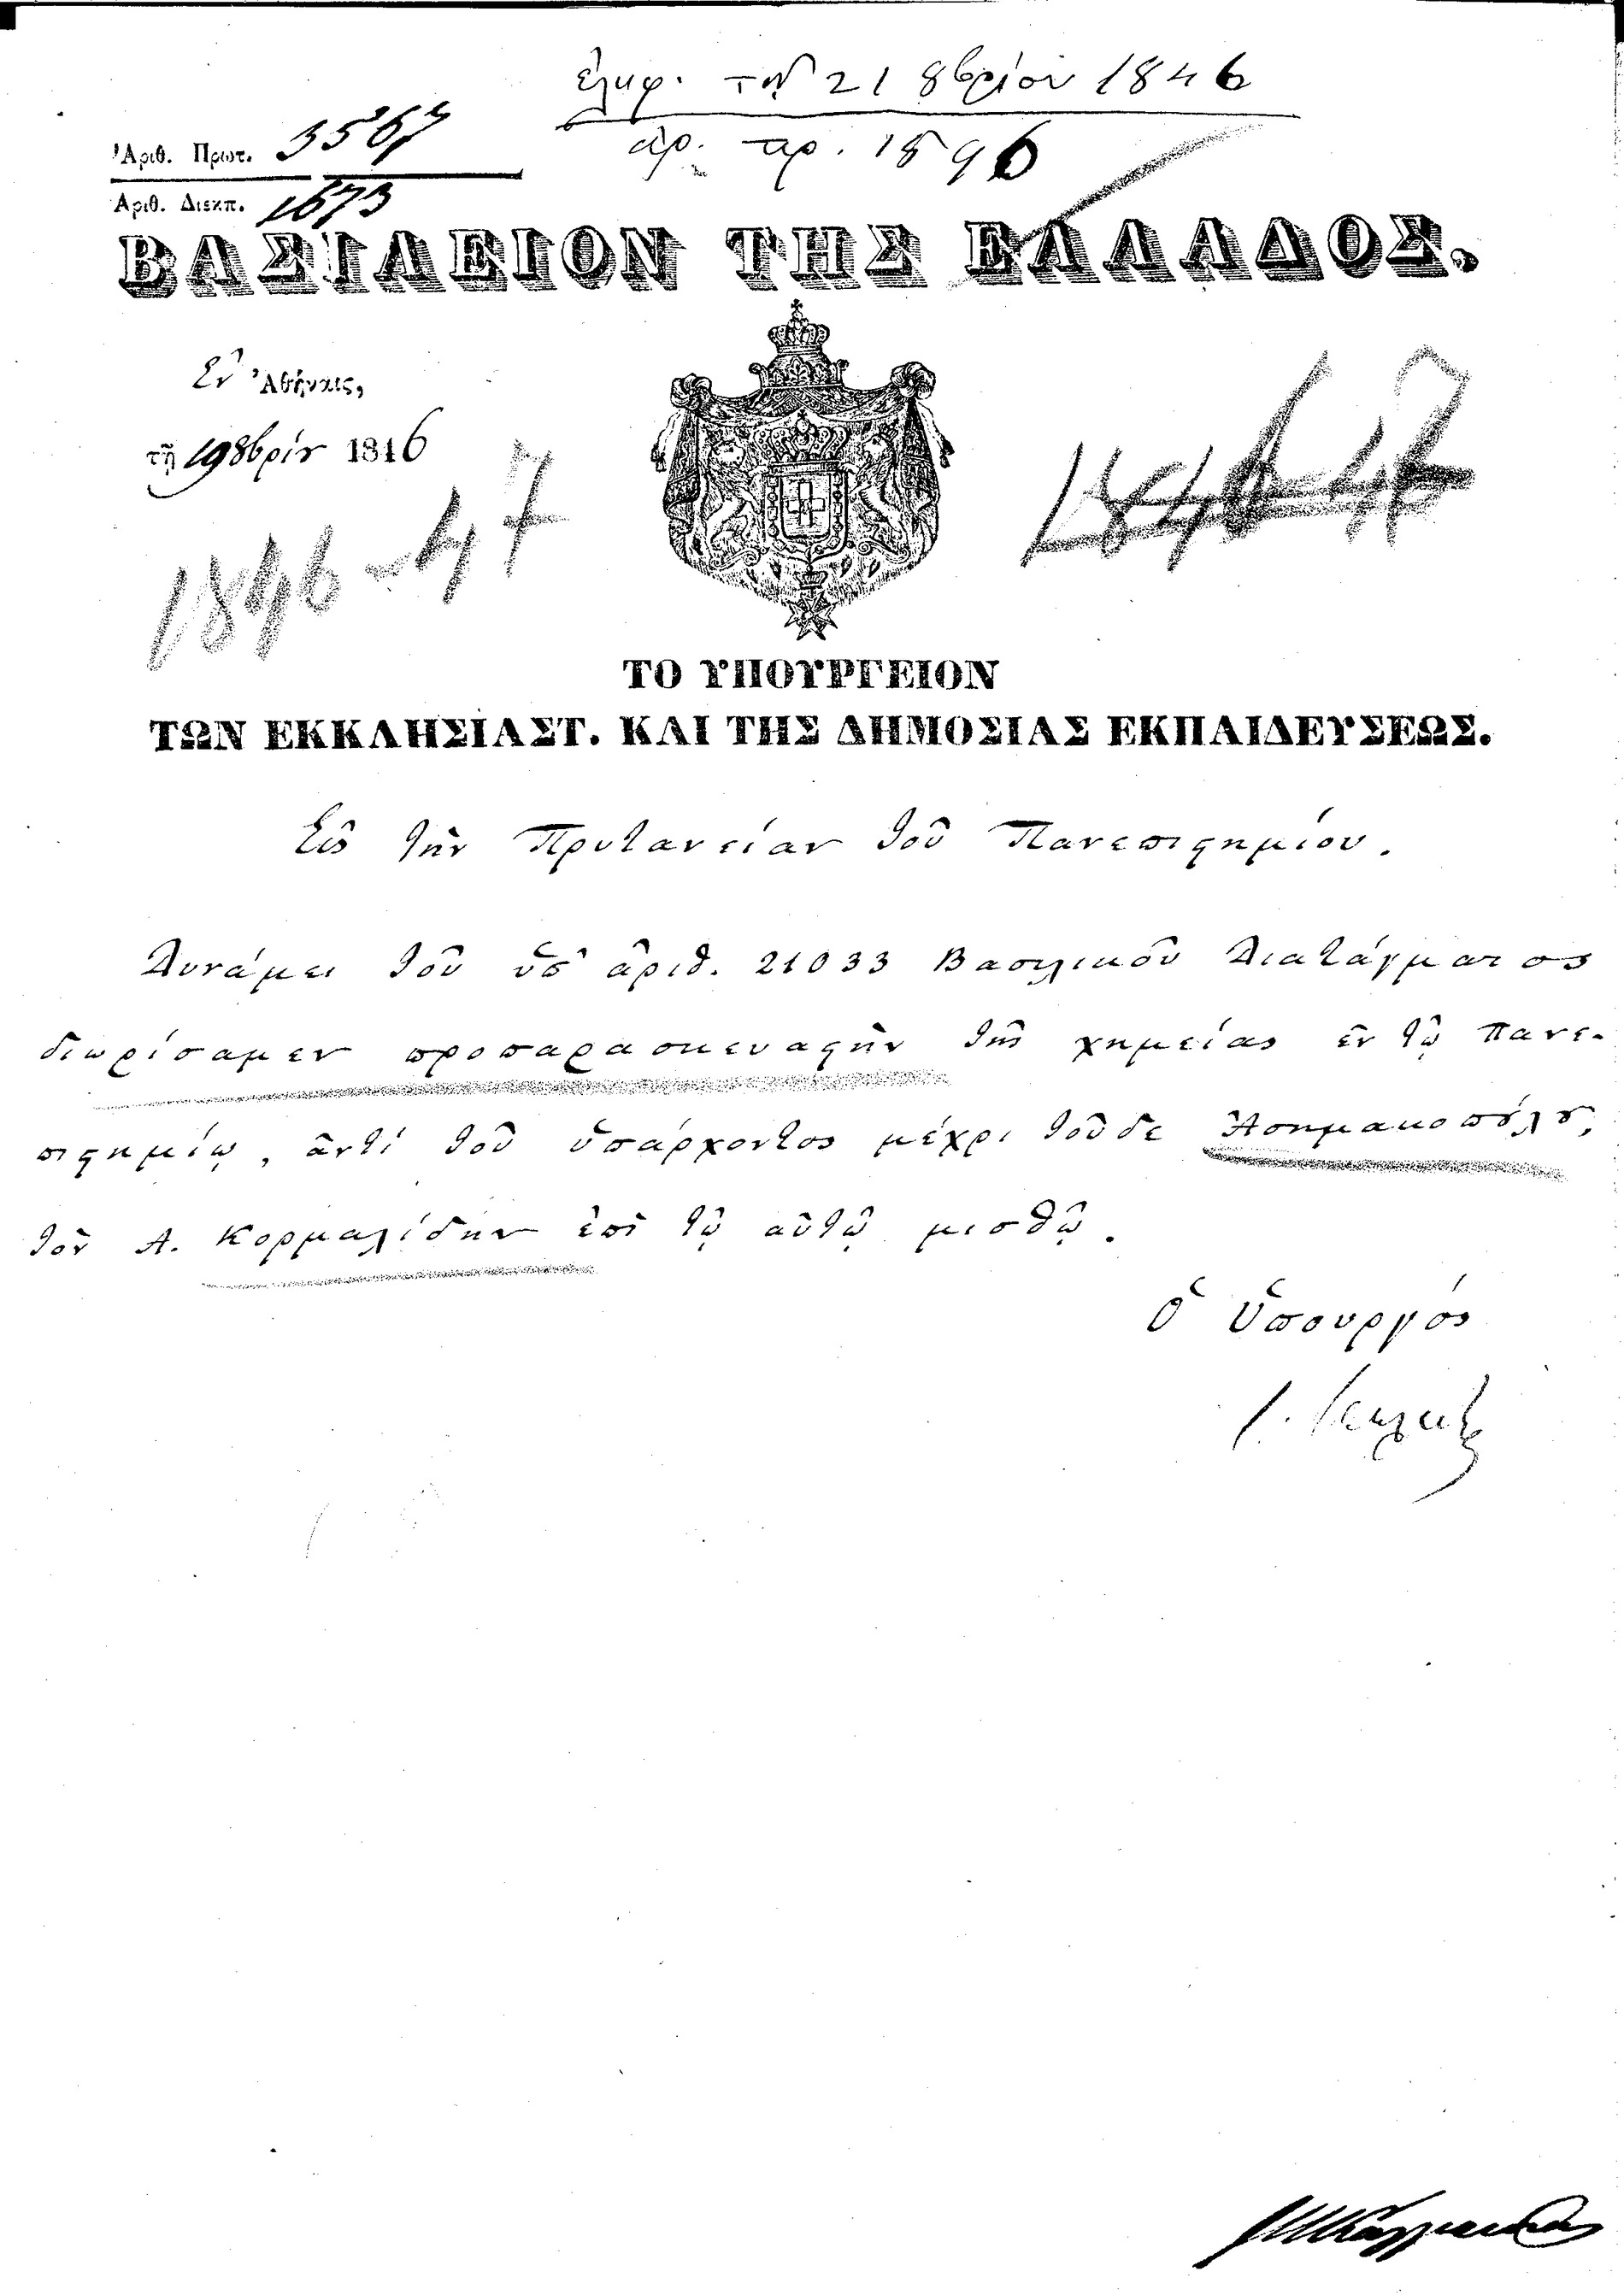 ἐλήφ. τῇ 21 8βρίου 1846
ἀρ. πρ. 1896
Ἀριθ. Πρωτ. 3567
Ἀριθ. Διεκπ. 1673
ΒΑΣΙΛΕΙΟΝ ΤΗΣ ΕΛΛΑΔΟΣ.
Ἐν Ἀθήναις,
τῇ 19 8βρίυ 1846
1846-47
1846-47
ΤΟ ΥΠΟΥΡΓΕΙΟΝ
ΤΩΝ ΕΚΚΛΗΣΙΑΣΤ. ΚΑΙ ΤΗΣ ΔΗΜΟΣΙΑΣ ΕΚΠΑΙΔΕΥΣΕΩΣ.
Εἰς τὴν Πρυτανείαν τοῦ Πανεπιστημίου.
Δυνάμει τοῦ ὑπ' ἀριθ. 21033 Βασιλικοῦ Διατάγματος
διωρίσαμεν προπαρασκευαστὴν τῆς χημείας ἐν τῷ Πανε-
πιστημίῳ, ἀντὶ τοῦ ὑπάρχοντος μέχρι τοῦδε Ἀσημακοπούλου,
τὸν Α. Κορμαλίδην ἐπὶ τῷ αὐτῷ μισθῷ.
Ὁ Ὑπουργός